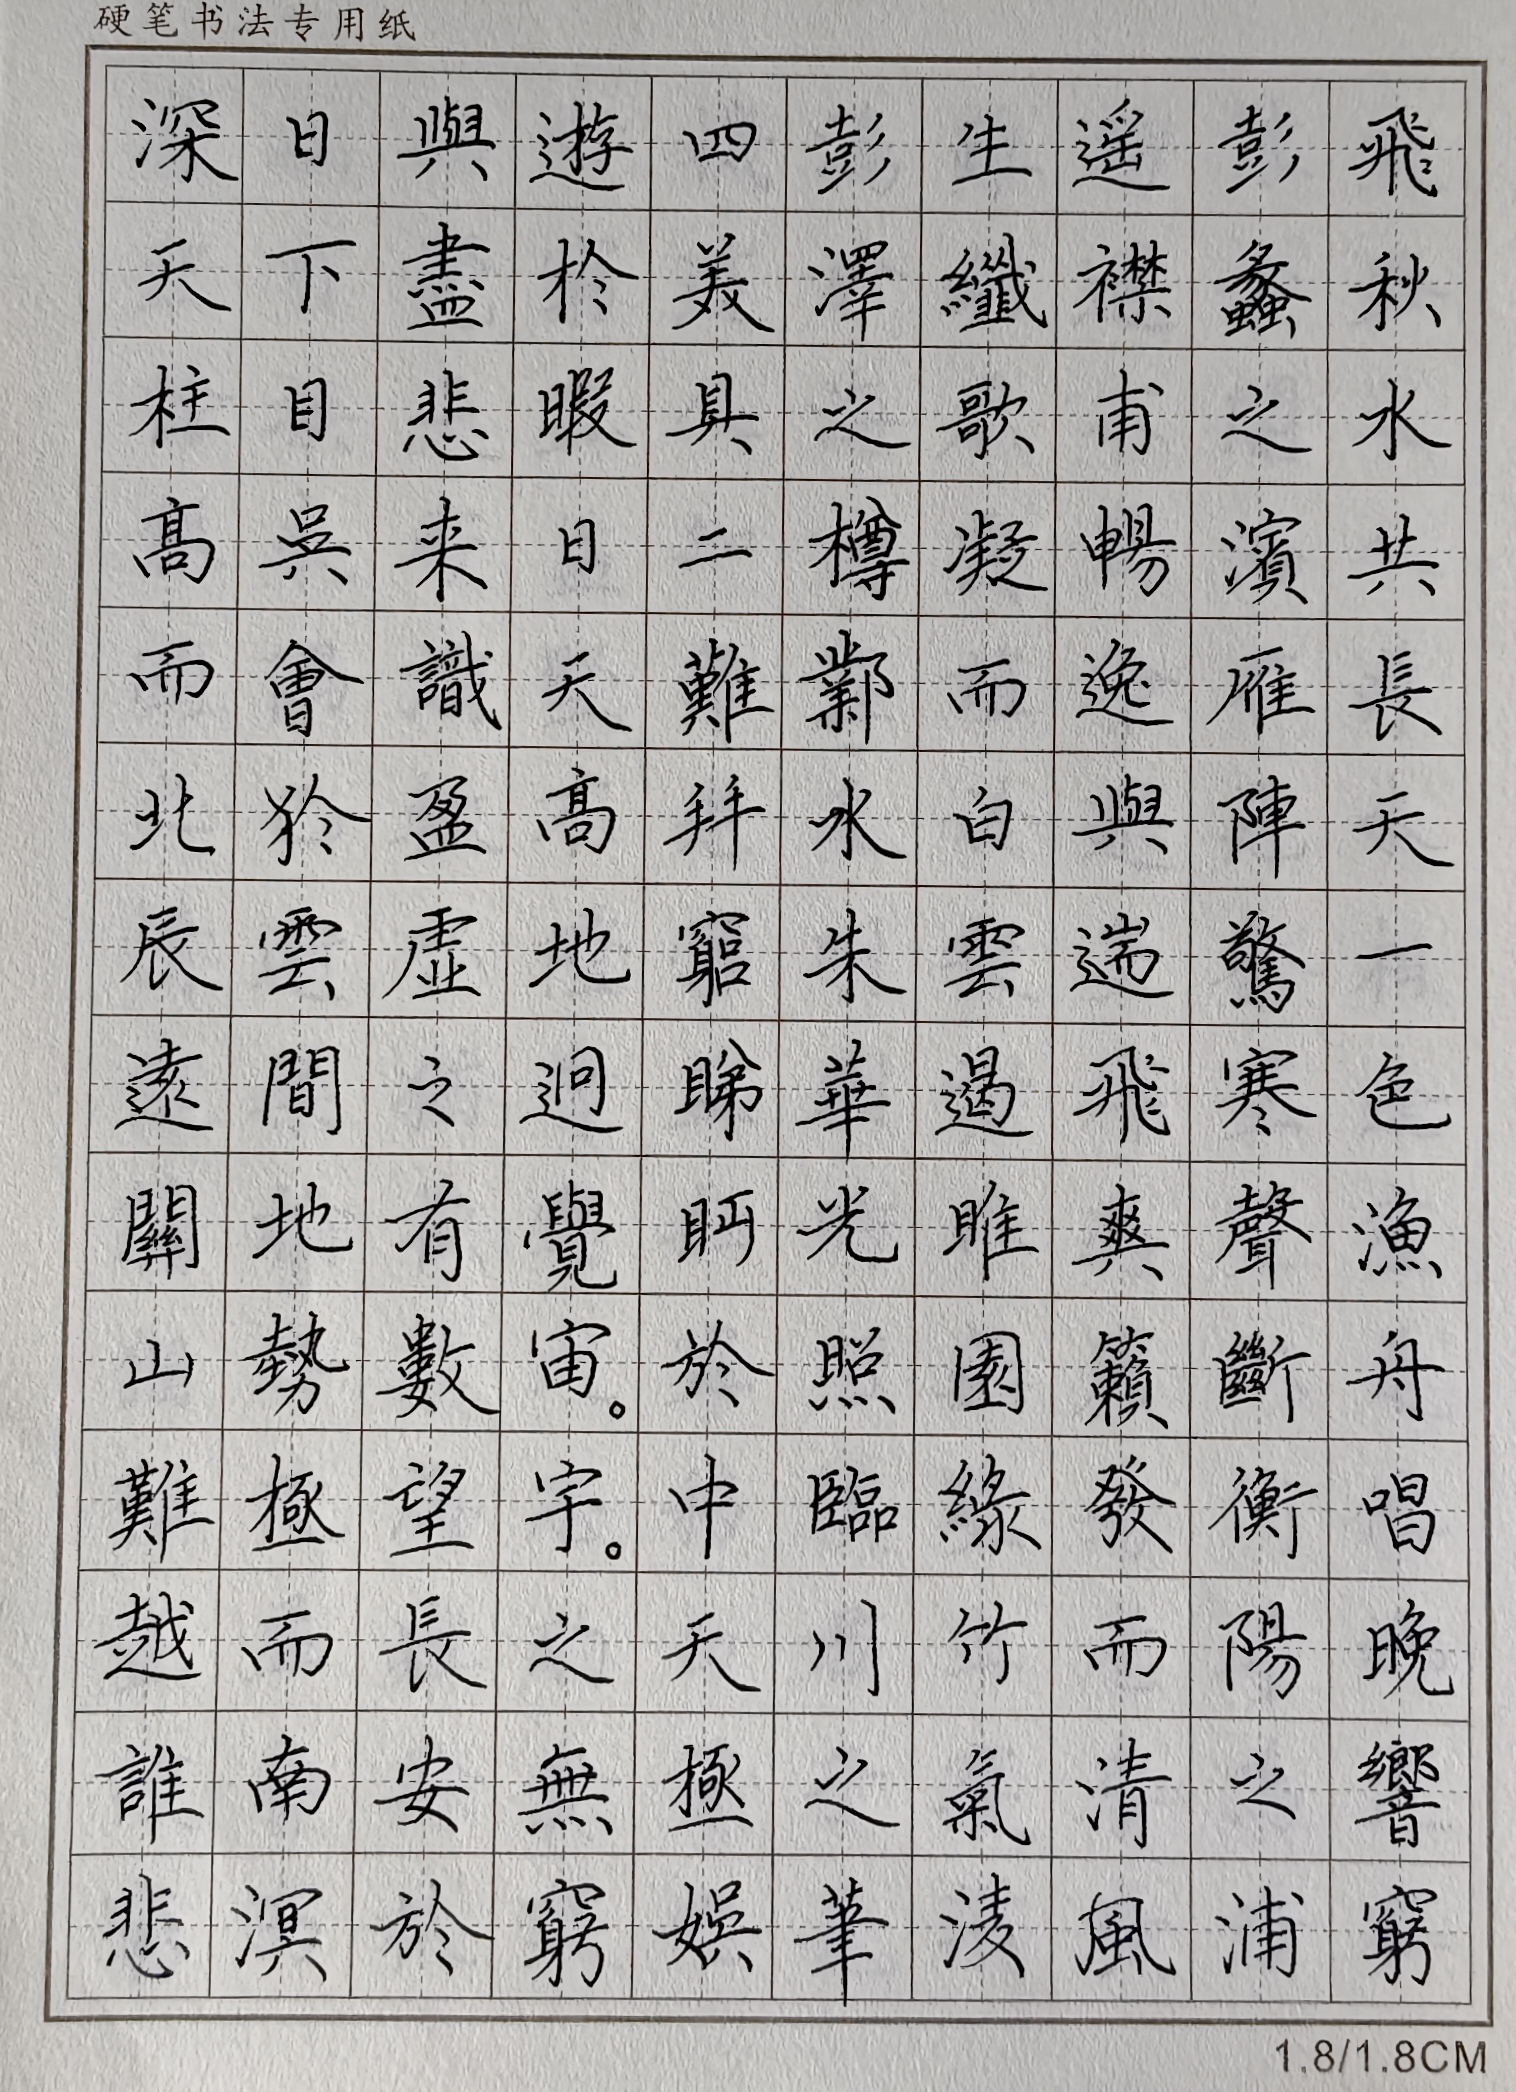 硬笔书法专用纸
飛秋水共長天一色漁舟唱晚響窮
彭蠡之濱雁陣驚寒聲斷衡陽之浦
遥襟甫暢逸與遄飛爽籟發而清風
生纖歌凝而白雲遏睢園緣竹氣淩
彭澤之樽鄴水朱華光照臨川之筆
四美具二難拜窮睇眄於中天極娛
遊於暇日天高地迥覺宙。宇。之無窮
與盡悲来識盈虛之有數望長安於
日下目吳會於雲間地勢極而南溟
深天柱高而北辰遠關山難越誰悲
1.8/1.8CM